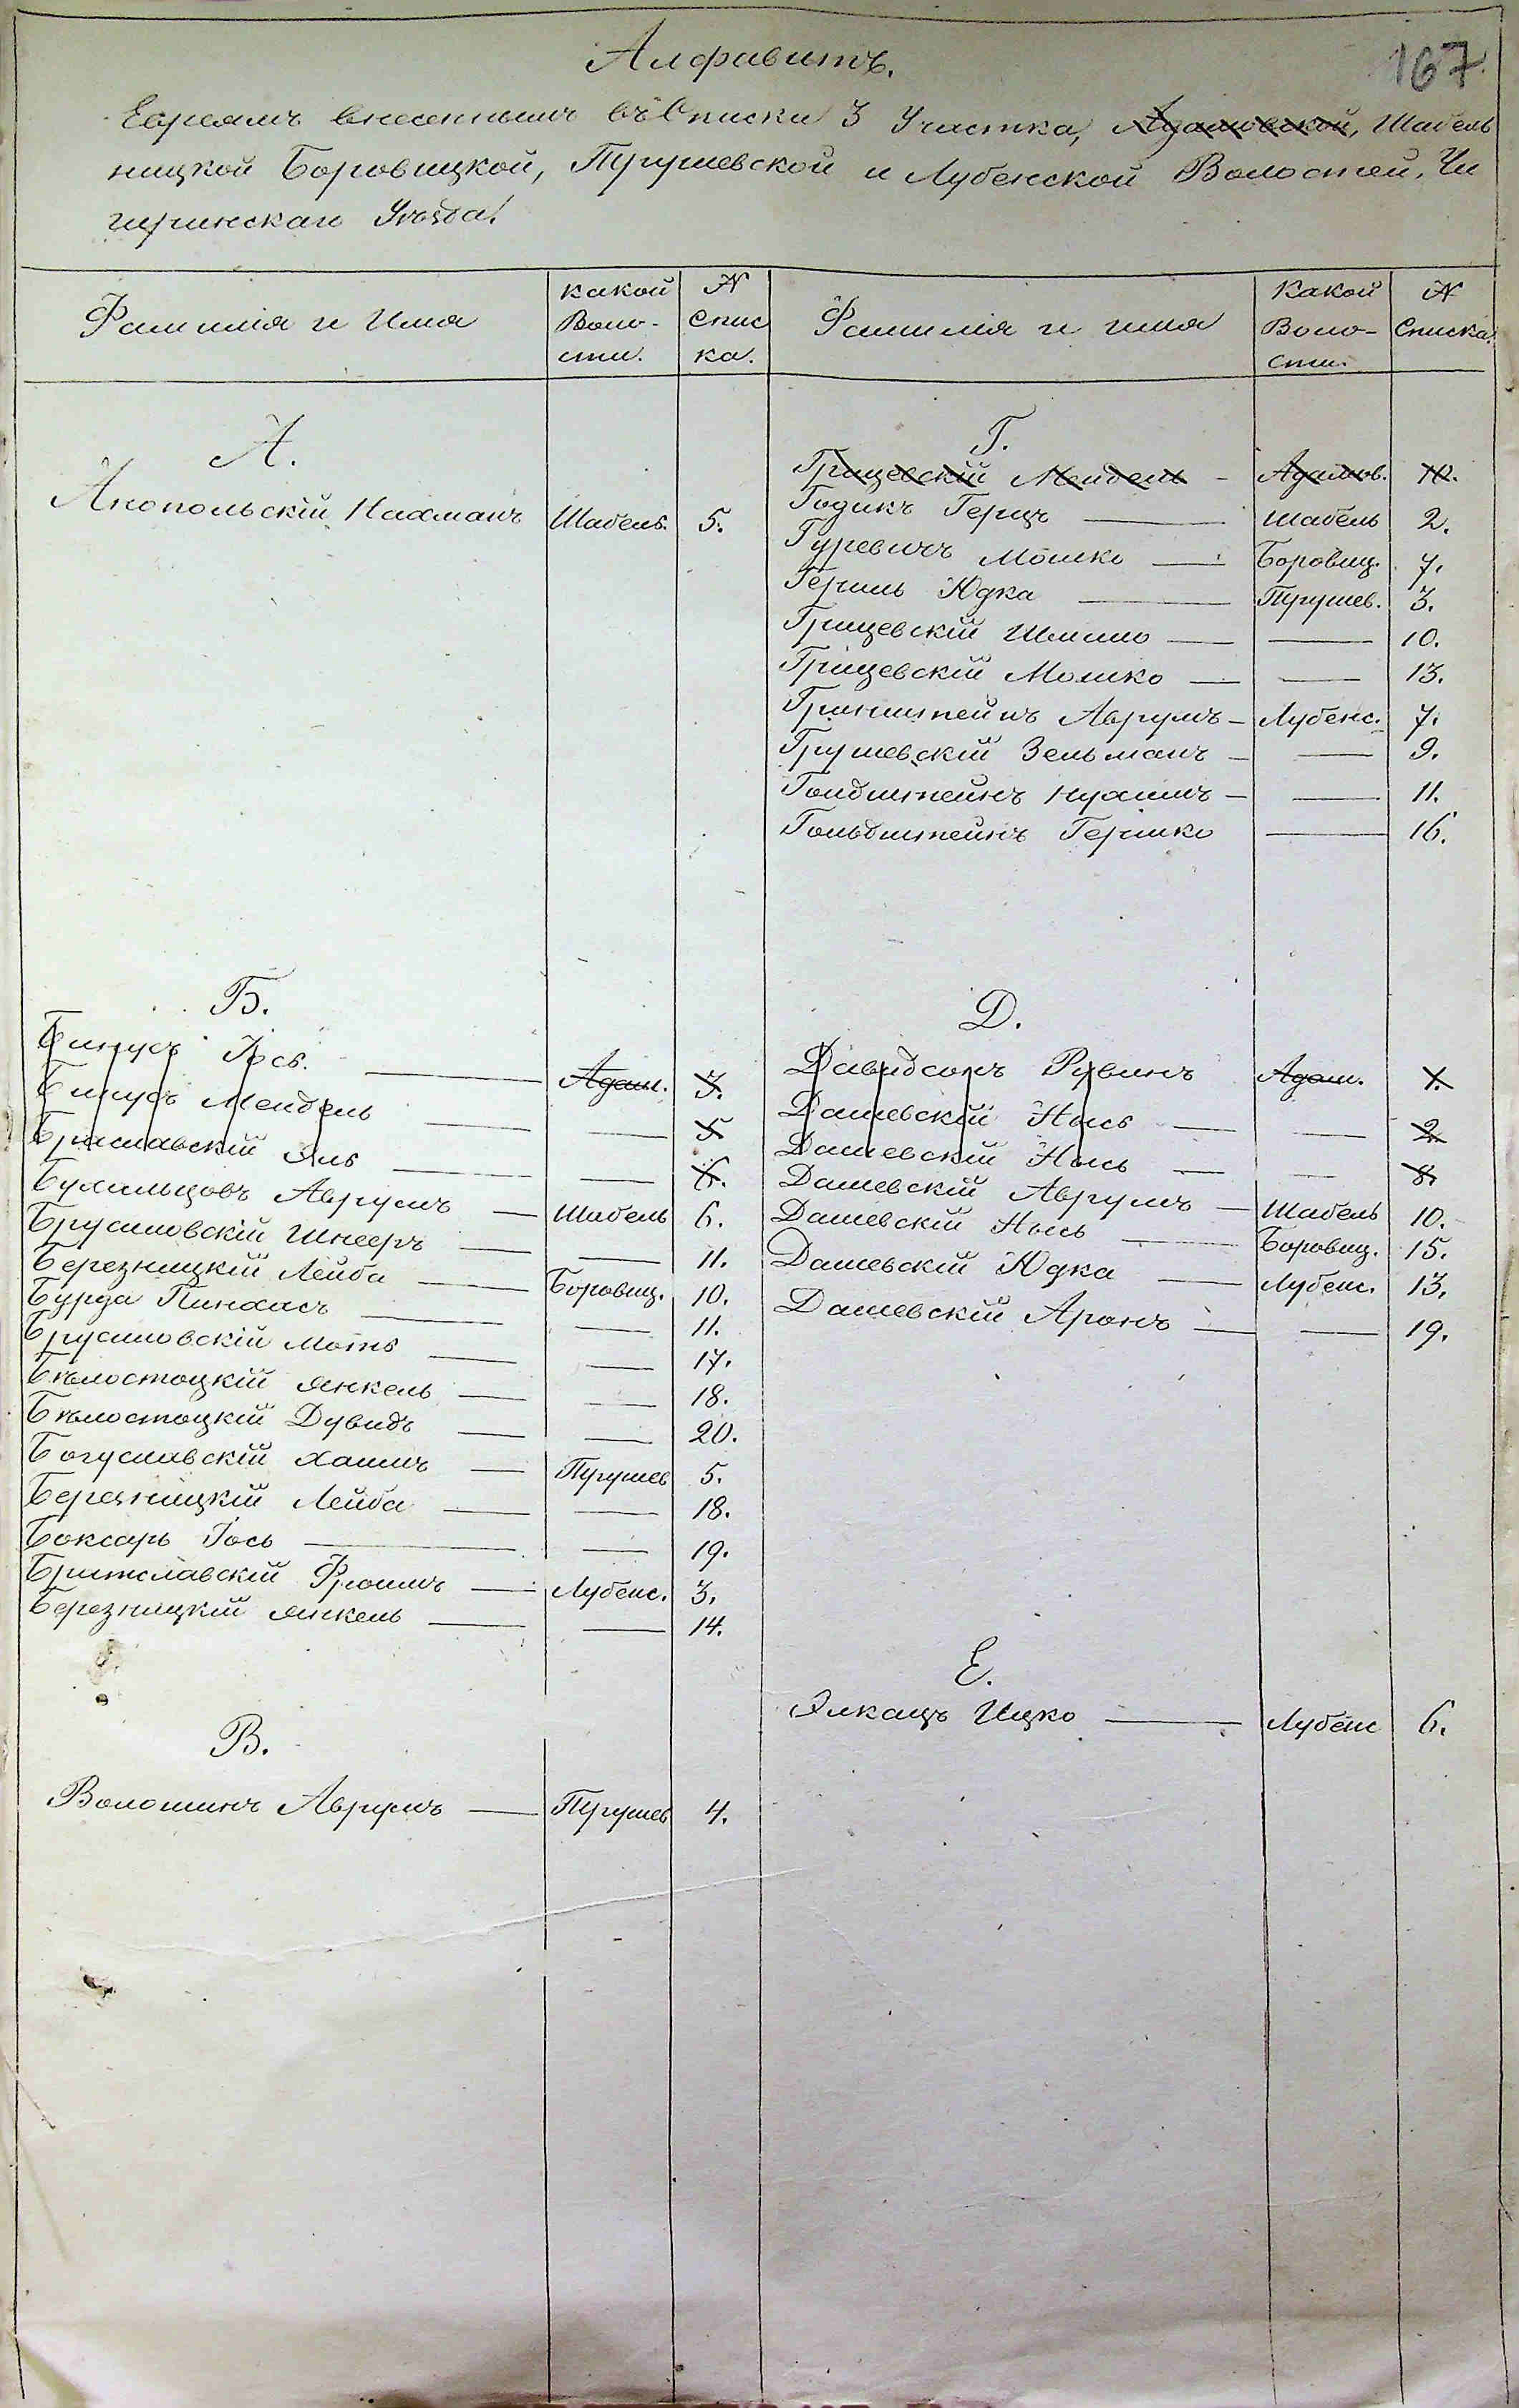 Алфавитъ.
167
Евреямъ внесеннымъ въ Списки 3 Участка, Адамовской, Шабель
ницкой Боровицкой, Тругшевской и Лубенской Волостей, Чи
гиринскаго Уѣзда.
Фамилія и Имя
какой Воло-
сти.
№ Спис
ка.
Фамилія и имя
Какой Воло-
сти.
№ Списка.
А.
Анопольскій Нахманъ Шабель. 5.
Б.
Бинусъ Іось. Адам. 3.
Бинусъ Мендель 5
Браславскій Эль 6.
Бухальцовъ Аврумъ Шабель 6.
Брусиловскій Шнееръ 11.
Березницкій Лейба Боровиц. 10.
Бурда Пинхасъ 11.
Брусиловскій Мотя 17.
Бѣлостоцкій Янкель 18.
Бѣлостоцкій Дувидъ 20.
Богуславскій Хаимъ 5.
Березницкій Лейба 18.
Боксаръ Іось 19.
Фроимъ Лубенс. 3.
Березницкій Янкель 14.
В.
Волошинъ Аврумъ 4.
Г.
Грицевскій Мендель Адамов. 10.
Годикъ Герцъ Шабель 2.
Гуревичъ Мошко Боровиц. 7.
Гершъ Юдка 3.
Грицевскій Шлиомо 10.
Грицевскій Мошко 13.
Гринштейнъ Аврумъ Лубенс. 7.
Грушевскій Зельманъ 9.
Голдштейнъ Нухимъ 11.
Гольдштейнъ Гершко 16.
Д.
Давидсонъ Рувинъ Адам. 1.
Дашевскій Нысь 2.
Дашевскій Нысь 8.
Дашевскій Аврумъ Шабель 10.
Дашевскій Нысь Боровиц. 15.
Дашевскій Юдка Лубенс. 13.
Дашевскій Аронъ 19.
Е.
Элкацъ Ицко Лубенс 6.